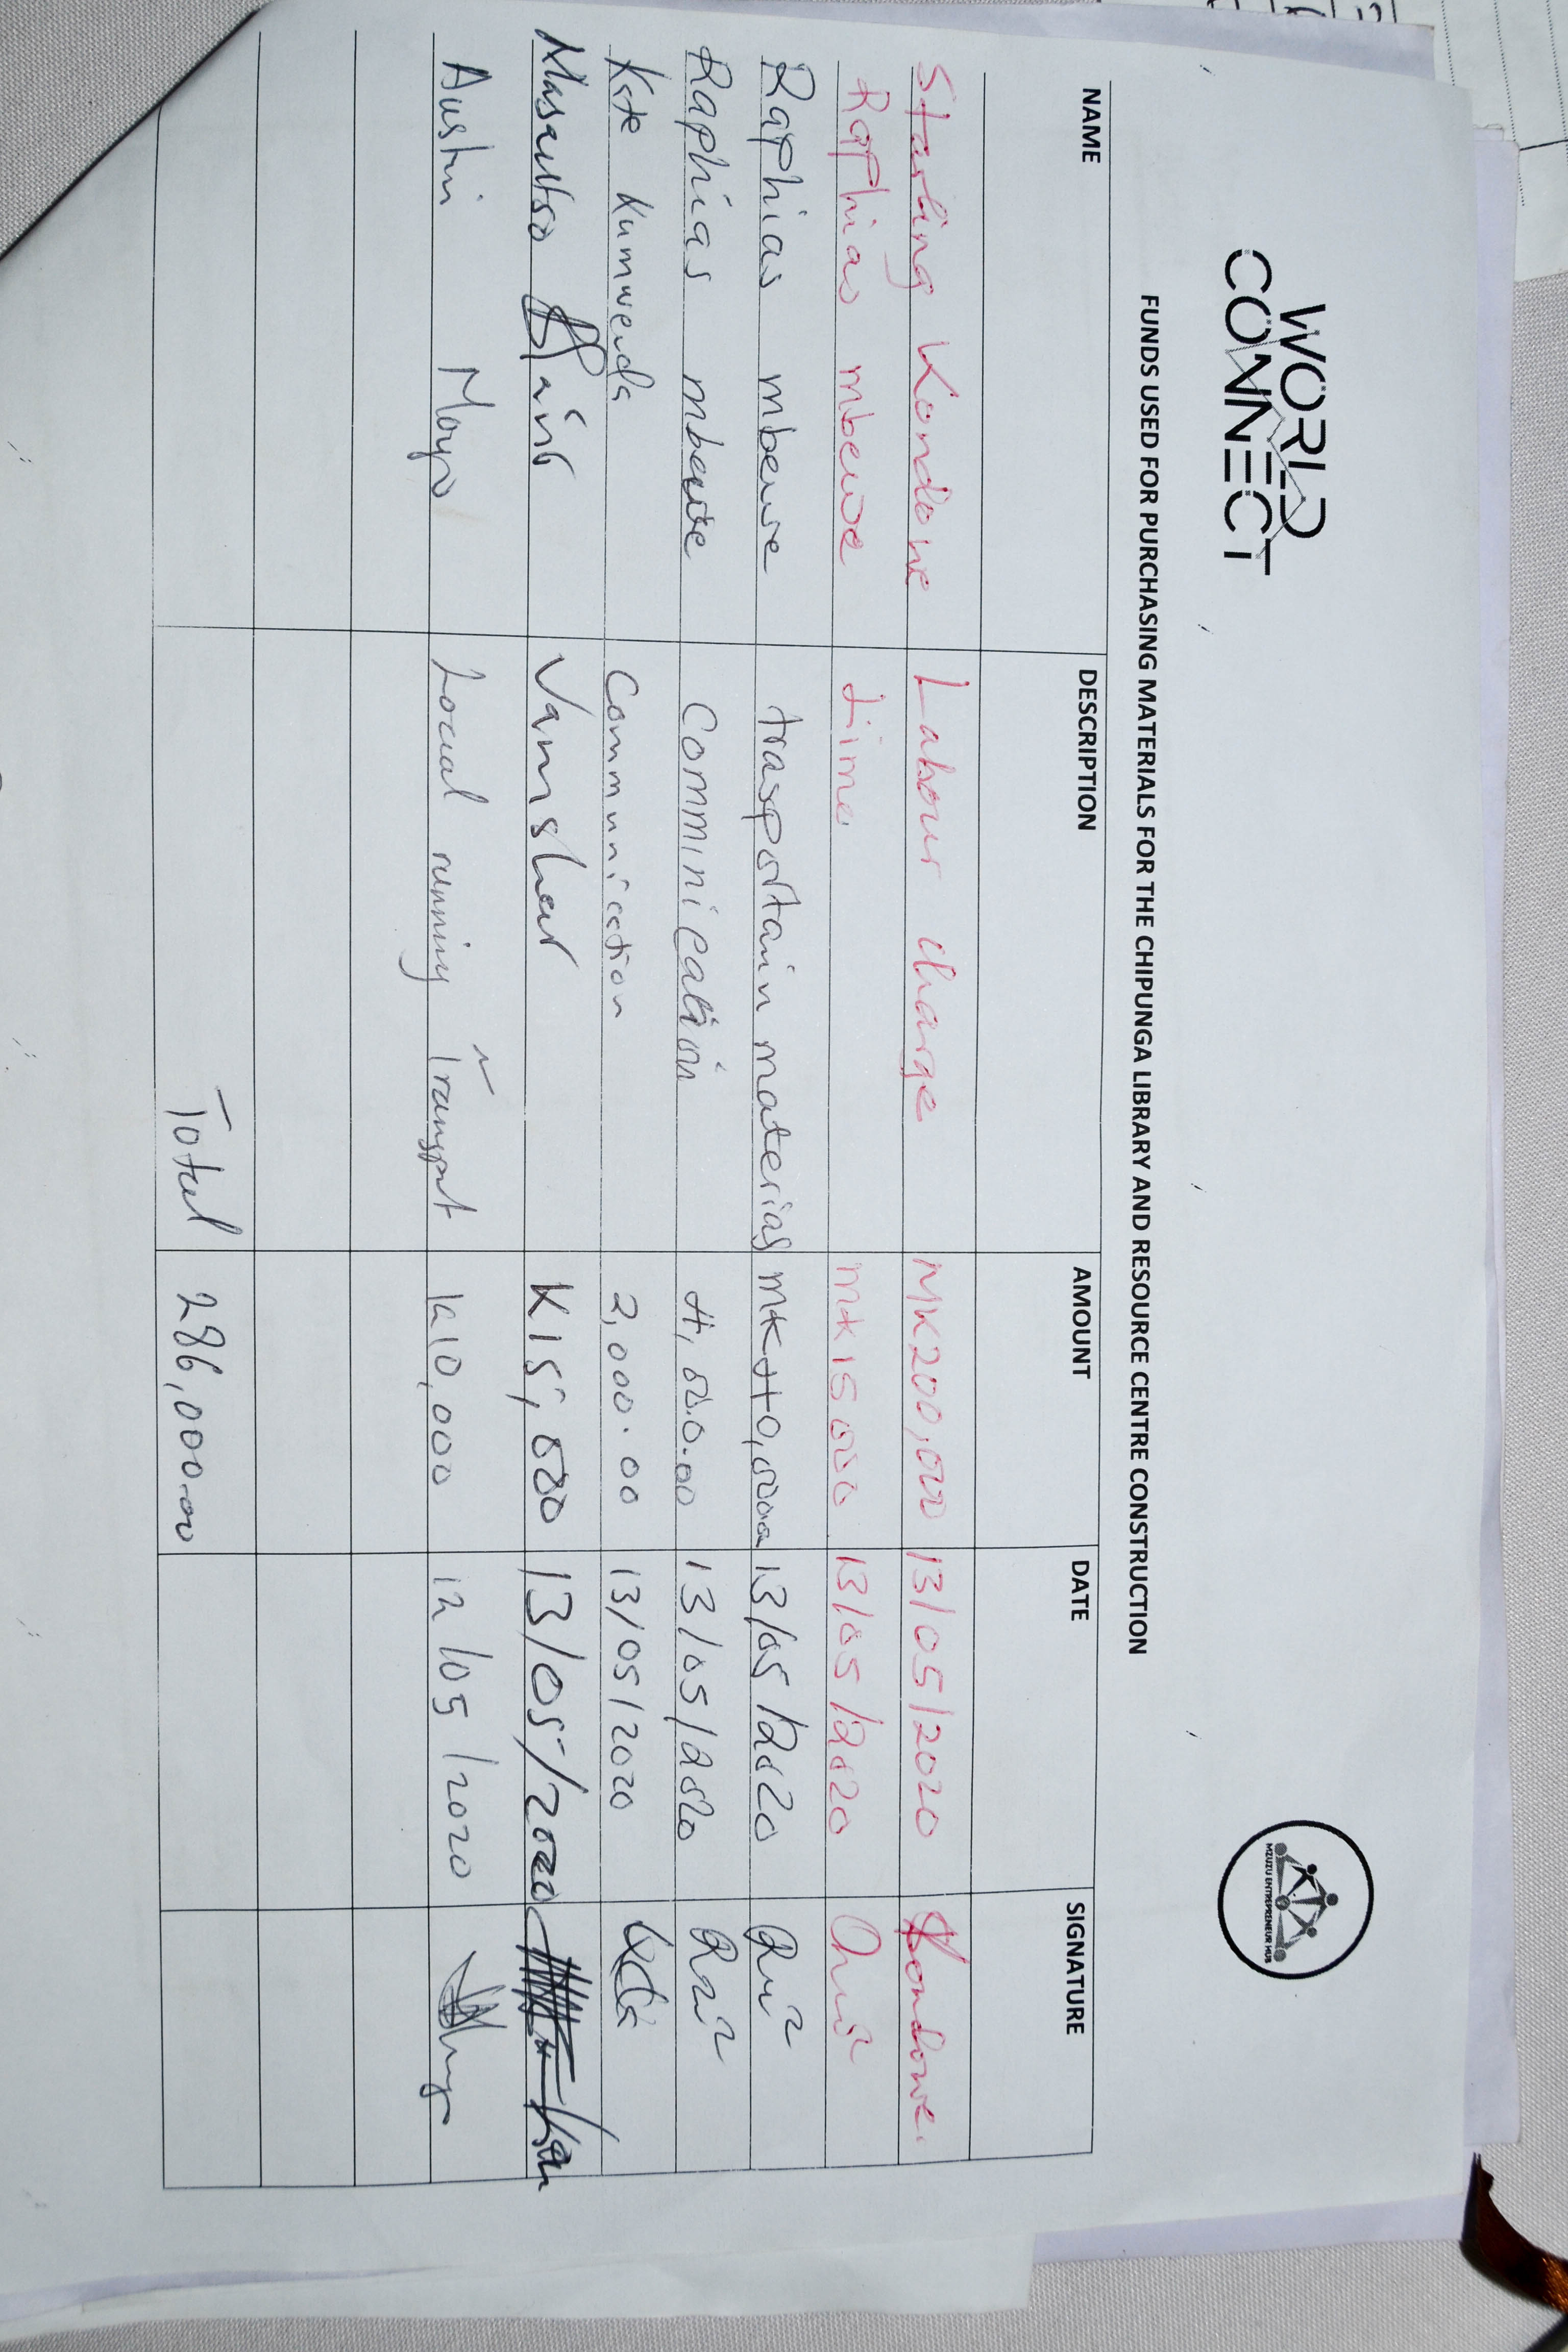 WORLD
CONNECT
MZUZU ENTREPRENEUR HUB
FUNDS USED FOR PURCHASING MATERIALS FOR THE CHIPUNGA LIBRARY AND RESOURCE CENTRE CONSTRUCTION
NAME DESCRIPTION AMOUNT DATE SIGNATURE
Starling Kondowe Labour charge MK200,000 13/05/2020 Kondowe.
Raphias mbewe time MK15000 13/05/2020
Raphias mbewe trasportain materias MK40,000 13/05/2020
Raphias mbewe Comminication 4,000.00 13/05/2020
Kate Kumwenda Communication 2,000.00 13/05/2020
Masautso Varnisher K15,000 13/05/2020
Austin Moyo Local running Transport K10,000 12/05/2020
Total 286,000.00